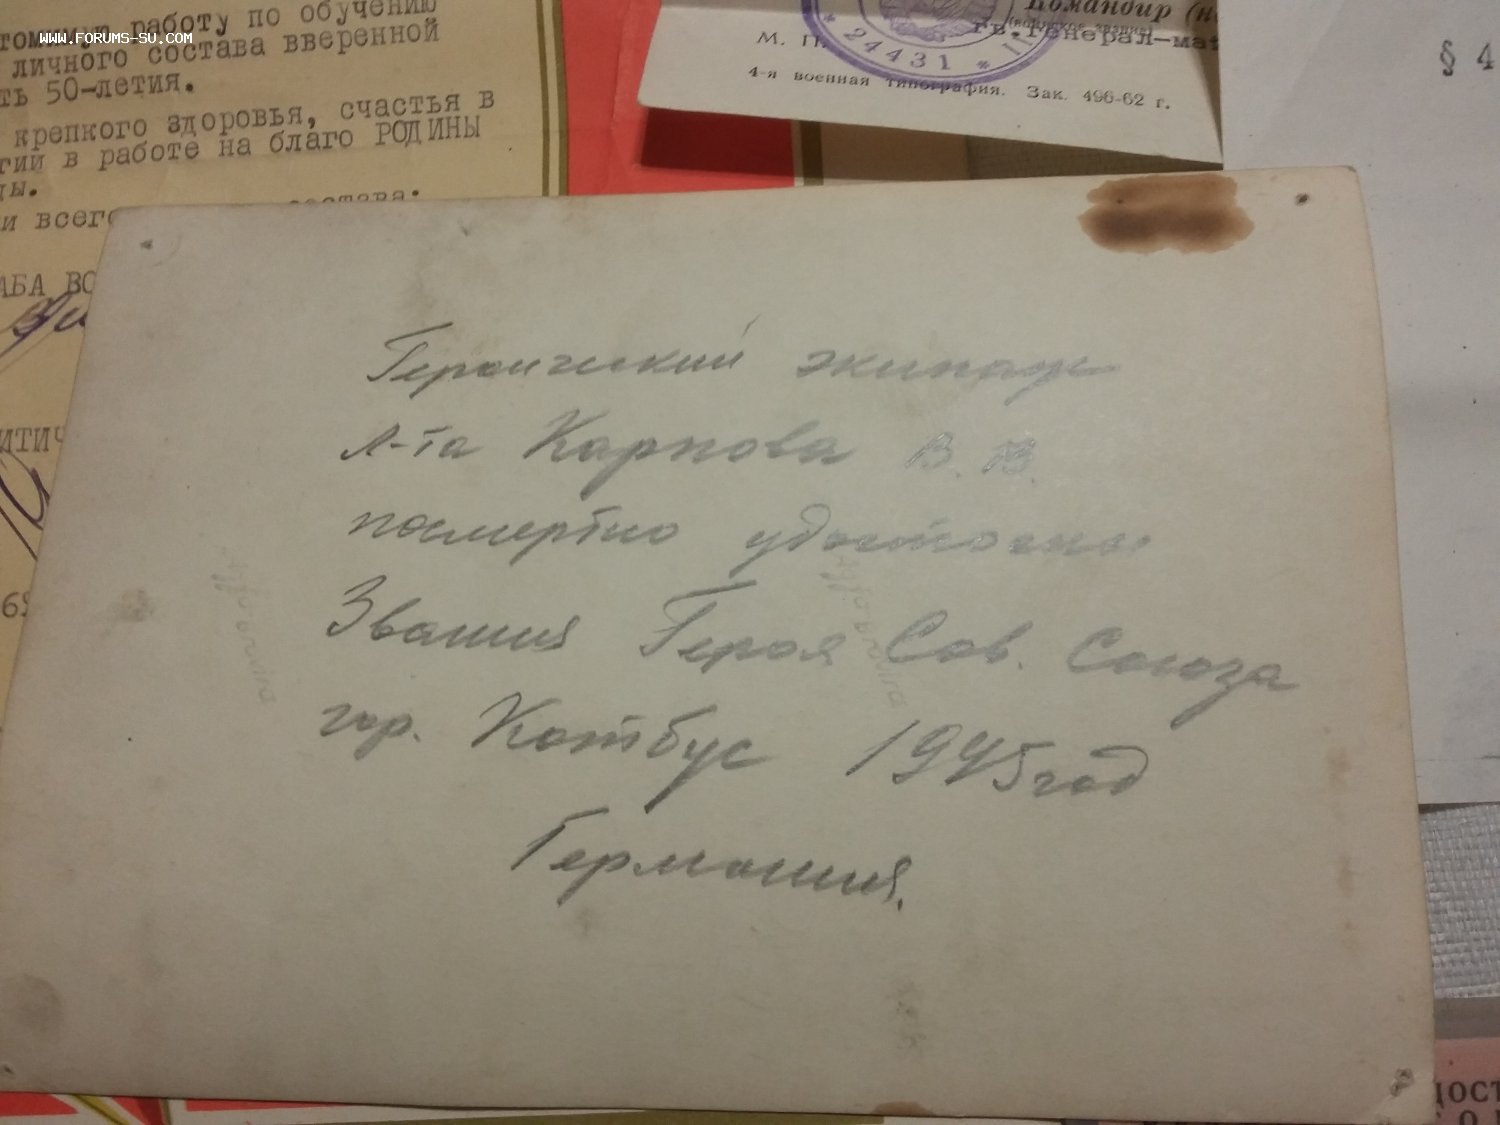 www.forums-su.com
работу по обучению
личного состава вверенной
ть 50-летия.
крепкого здоровья, счастья в
гии в работе на благо РОДИНЫ
ды.
и всего
АБА ВО
ИТИЧ
Командир (н
гв.генерал-ма
24431
М. П.
4-я военная типография. Зак. 496-62 г.
§ 4
Героический экипаж
л-та Карпова В. В.
посмертно удостоены
Звания Героя Сов. Союза
гор. Котбус 1945 год
Германия.
Agfa Brovira
Agfa Brovira